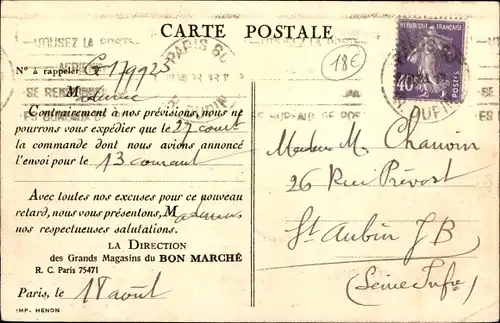 CARTE POSTALE
UTILISEZ LA POSTE
PARIS
R. DUPIN
18€
40
POSTES
R. DUPIN
Nº à rappeler G 179923
Madame
Contrairement à nos prévisions, nous ne
pourrons vous expédier que le 27 court
la commande dont nous avions annoncé
l'envoi pour le 13 courant
Avec toutes nos excuses pour ce nouveau
retard, nous vous présentons, Madame
nos respectueuses salutations.
LA DIRECTION
des Grands Magasins du BON MARCHÉ
R. C. Paris 75471
Paris, le 18 août
IMP. HENON
Madame M. Chauvin
26 Rue Prévost
St Aubin J B
(Seine Infre)